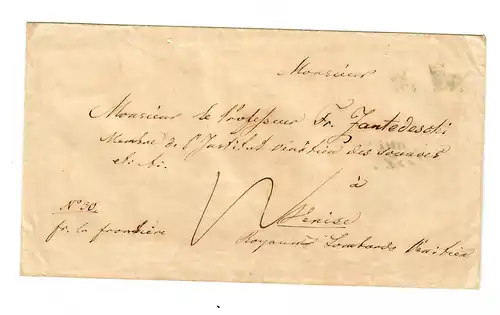 Monsieur
Monsieur le Professeur Fr. Zantedeschi
Membre de l'Institut vénitien des sciences
à
Venise
Royaume Lombardo Vénitien
N° 30.
fr. la frontière